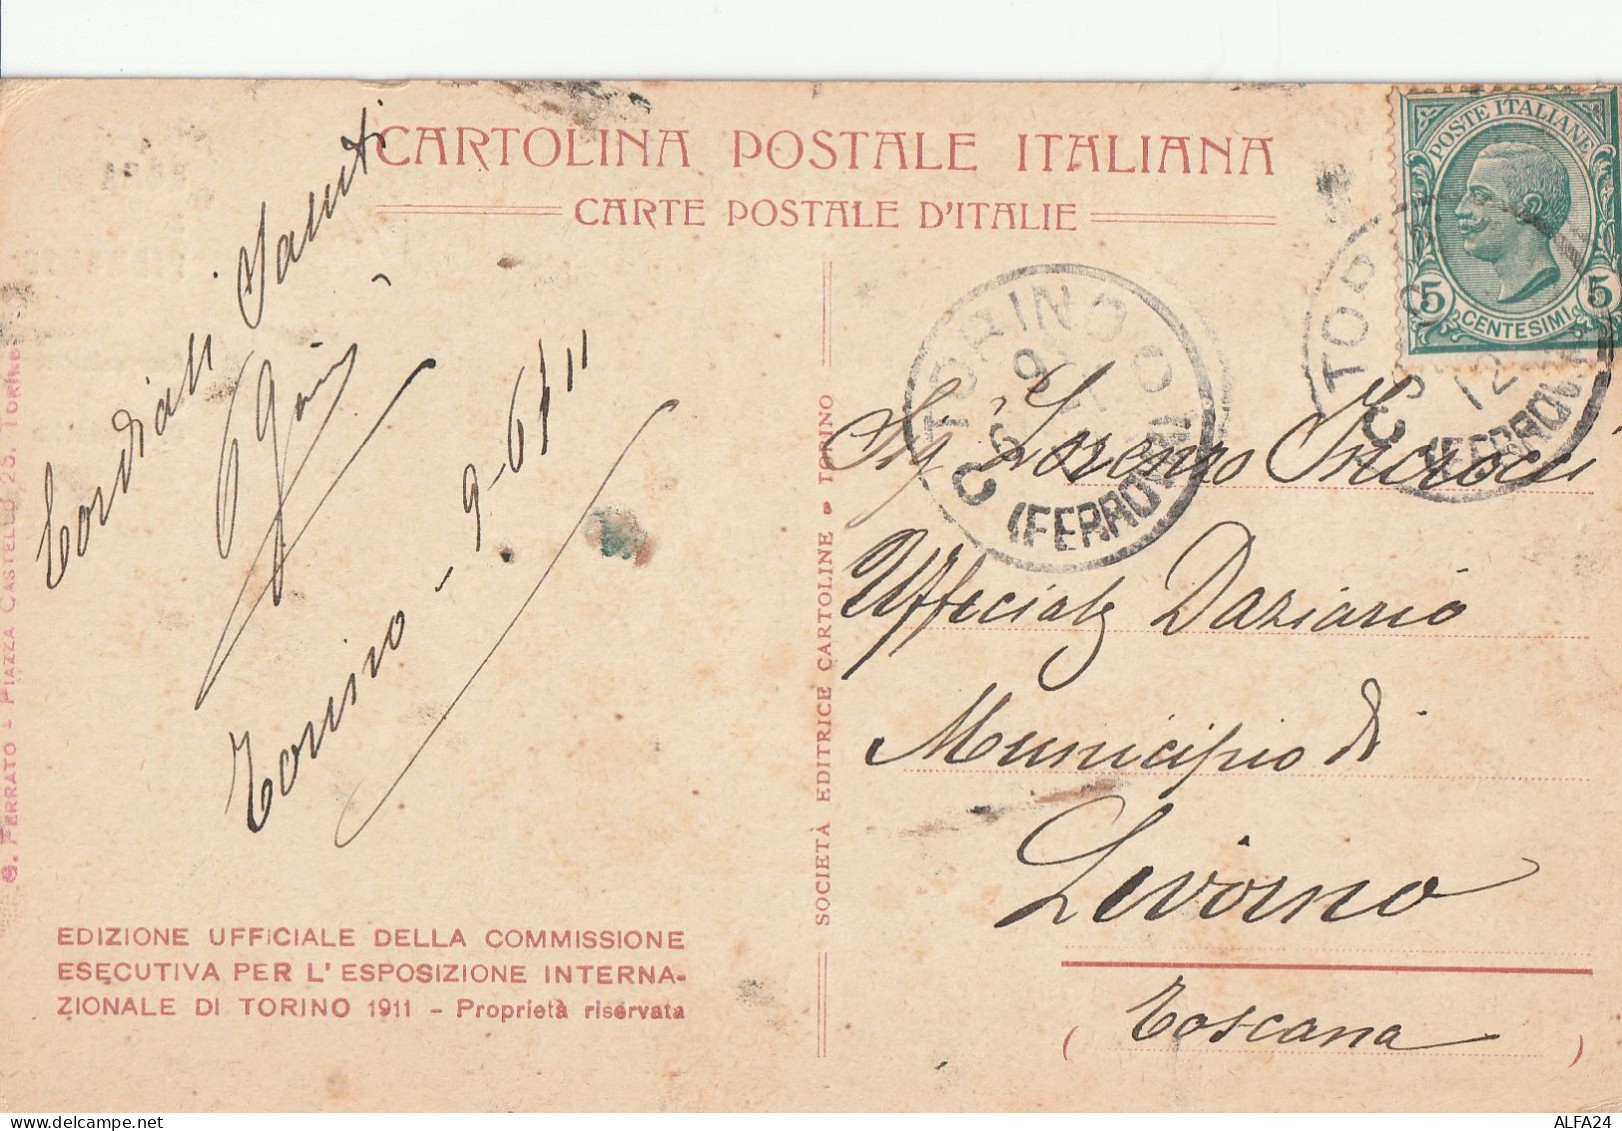 CARTOLINA POSTALE ITALIANA
CARTE POSTALE D'ITALIE
POSTE ITALIANE
5 5
CENTESIMI
TORINO
(FERROVIA)
(FERROVIA)
Cordiali Saluti
Torino - 9-6/11
G. FERRATO - PIAZZA CASTELLO 25. TORINO
SOCIETÀ EDITRICE CARTOLINE • TORINO
Sig. Lorenzo Incrocci
Ufficiale Daziario
Municipio di
Livorno
(Toscana)
EDIZIONE UFFICIALE DELLA COMMISSIONE
ESECUTIVA PER L'ESPOSIZIONE INTERNA-
ZIONALE DI TORINO 1911 - Proprietà riservata
delcampe.net
ALFA24